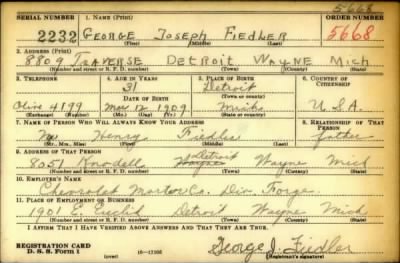 5668
SERIAL NUMBER 1. NAME (Print) ORDER NUMBER
2232 GEORGE JOSEPH FIEDLER 5668
(First) (Middle) (Last)
2. ADDRESS (Print)
8809 TRAVERSE DETROIT WAYNE MICH
(Number and street or R. F. D. number) (Town) (County) (State)
3. TELEPHONE 4. AGE IN YEARS 5. PLACE OF BIRTH 6. COUNTRY OF CITIZENSHIP
31 Detroit
DATE OF BIRTH (Town or county)
Olive 4199 Mar 12 1909 Mich U.S.A.
(Exchange) (Number) (Mo.) (Day) (Yr.) (State or country)
7. NAME OF PERSON WHO WILL ALWAYS KNOW YOUR ADDRESS 8. RELATIONSHIP OF THAT PERSON
Mr Henry Fiedler Father
(Mr., Mrs., Miss) (First) (Middle) (Last)
9. ADDRESS OF THAT PERSON
8051 Detroit Wayne Mich
(Number and street or R. F. D. number) (Town) (County) (State)
10. EMPLOYER'S NAME
Chevrolet Motor Co. Div. Forge
11. PLACE OF EMPLOYMENT OR BUSINESS
1901 E. Euclid Detroit Wayne Mich
(Number and street or R. F. D. number) (Town) (County) (State)
I AFFIRM THAT I HAVE VERIFIED ABOVE ANSWERS AND THAT THEY ARE TRUE.
REGISTRATION CARD
D. S. S. Form 1 (over) George J. Fiedler
(Registrant's signature)